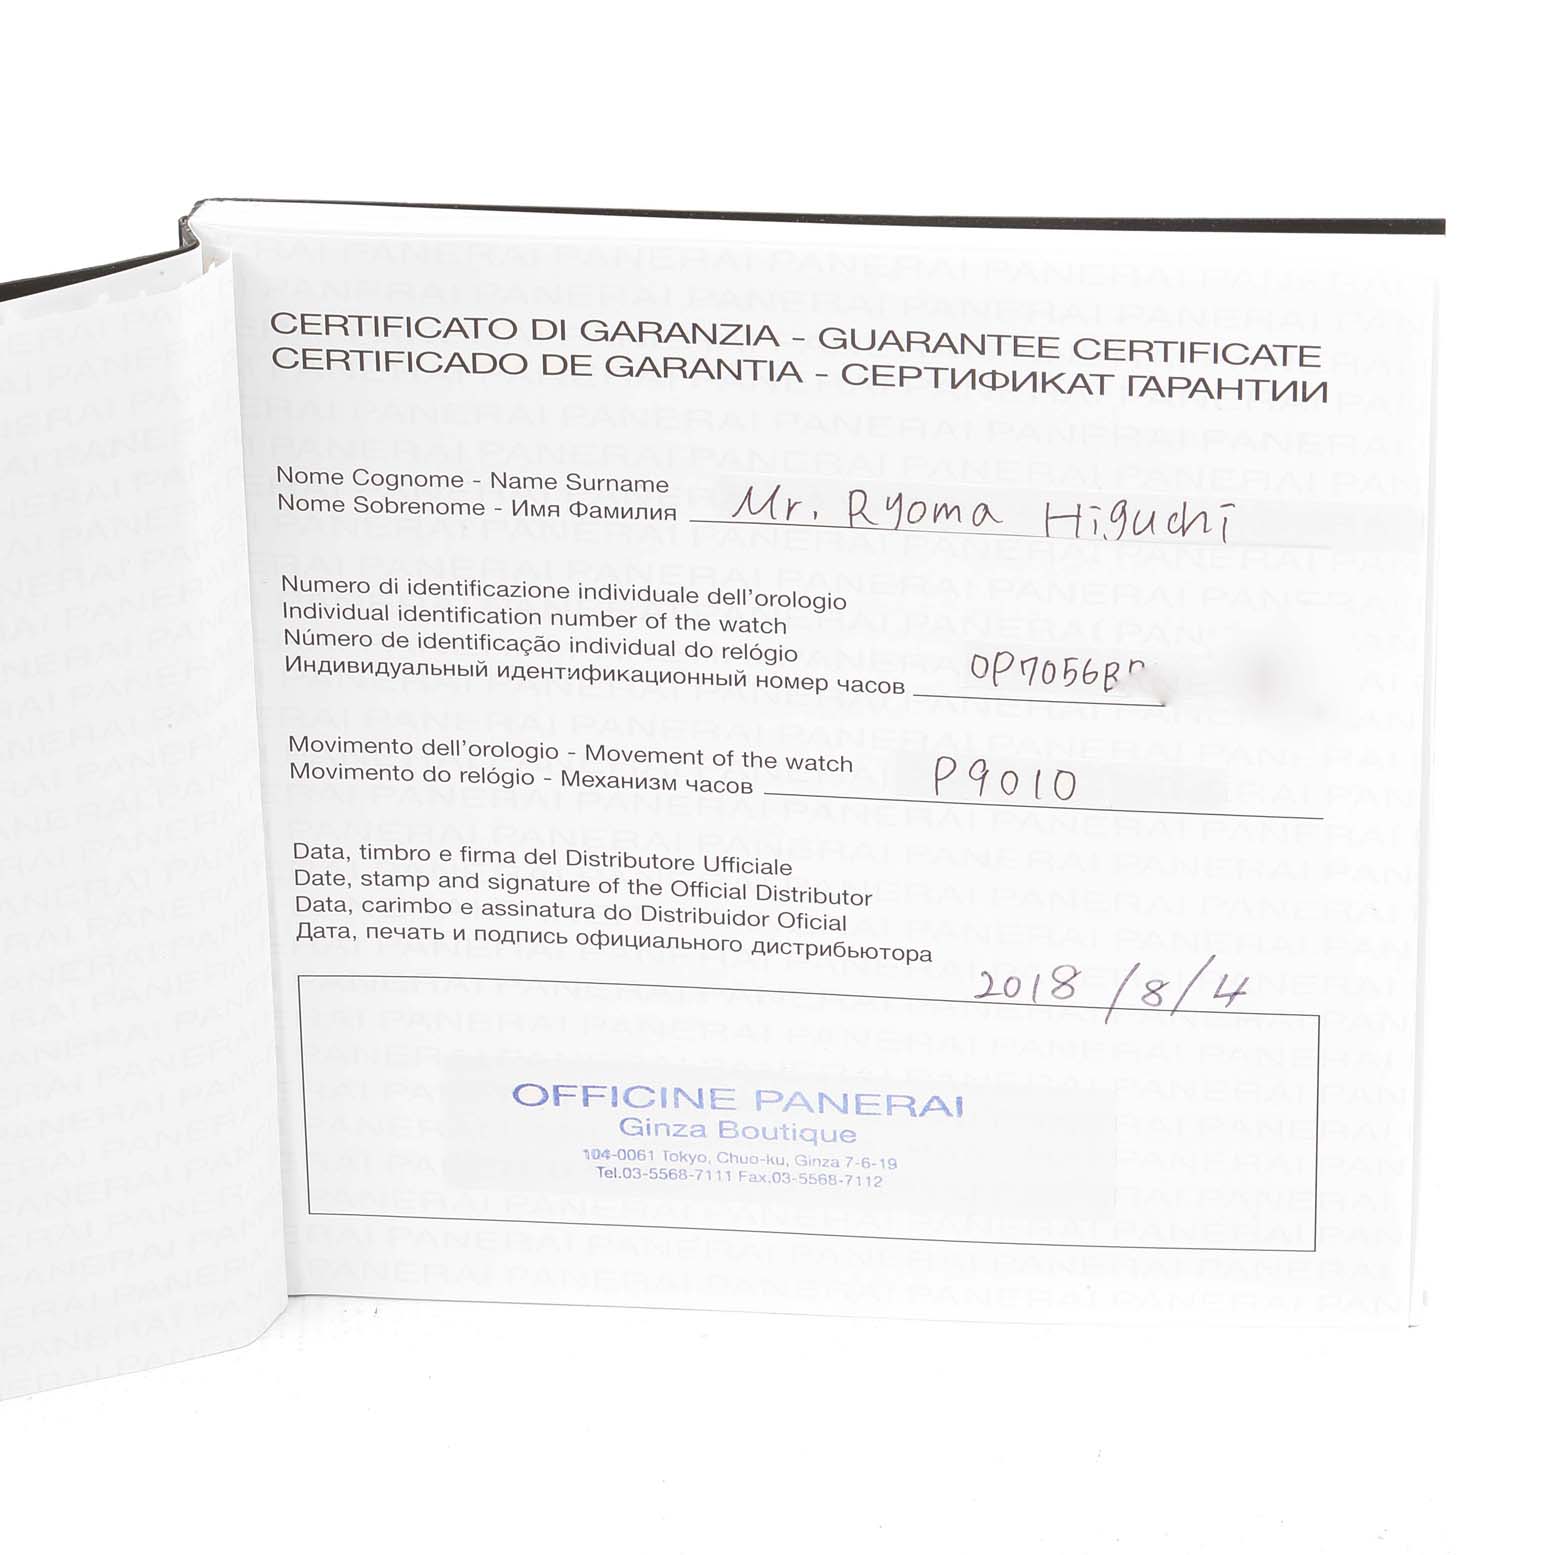 CERTIFICATO DI GARANZIA - GUARANTEE CERTIFICATE
CERTIFICADO DE GARANTIA - СЕРТИФИКАТ ГАРАНТИИ
Nome Cognome - Name Surname
Nome Sobrenome - Имя Фамилия Mr. Ryoma Higuchi
Numero di identificazione individuale dell'orologio
Individual identification number of the watch
Número de identificação individual do relógio
Индивидуальный идентификационный номер часов OP7056B
Movimento dell'orologio - Movement of the watch
Movimento do relógio - Механизм часов P9010
Data, timbro e firma del Distributore Ufficiale
Date, stamp and signature of the Official Distributor
Data, carimbo e assinatura do Distribuidor Oficial
Дата, печать и подпись официального дистрибьютора
2018/8/4
OFFICINE PANERAI
Ginza Boutique
104-0061 Tokyo, Chuo-ku, Ginza 7-6-19
Tel.03-5568-7111 Fax.03-5568-7112